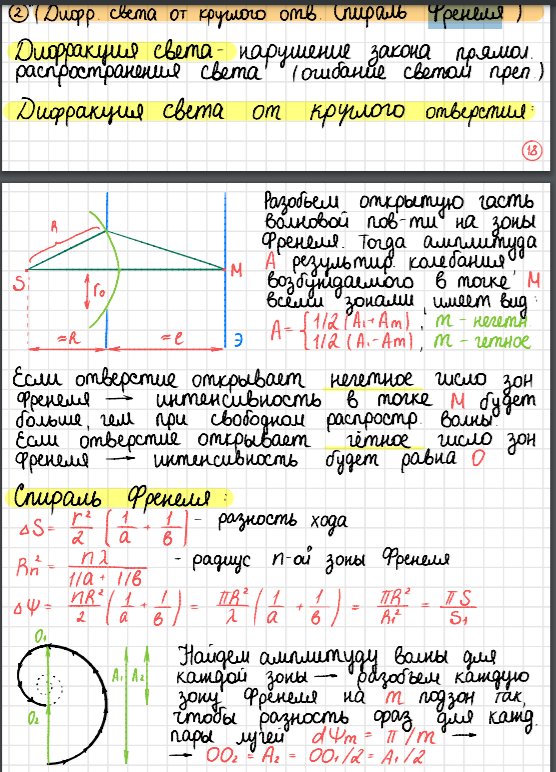 ② (Дифр. света от круглого отв. Спираль Френеля)
Дифракция света - нарушение закона прямол.
распространения света (огибание светом преп.)
Дифракция света от круглого отверстия:
18
Разобьем открытую часть
волновой пов-ти на зоны
Френеля. Тогда амплитуда
A результир. колебания
возбуждаемого в точке M
всеми зонами, имеет вид:
A = { 1/2 (A₁+Aₘ), m - нечетн
1/2 (A₁-Aₘ), m - четное
R
S
r₀
M
≈R
≈e
Э
Если отверстие открывает нечетное число зон
Френеля → интенсивность в точке M будет
больше, чем при свободном распростр. волны.
Если отверстие открывает чётное число зон
Френеля → интенсивность будет равна 0
Спираль Френеля:
ΔS = r²/2 (1/a + 1/в) - разность хода
Rn² = nλ / (1/a + 1/в) - радиус n-ой зоны Френеля
ΔΨ = пR²/2 (1/a + 1/в) = πR²/λ (1/a + 1/в) = πR²/R₁² = πS/S₁
O₁
O₂
A₁
A₂
Найдем амплитуду волны для
каждой зоны → разобьем каждую
зону Френеля на m подзон так,
чтобы разность фаз для кажд.
пары лучей dΨm = π/m →
→ OO₂ = A₂ = OO₁/2 = A₁/2